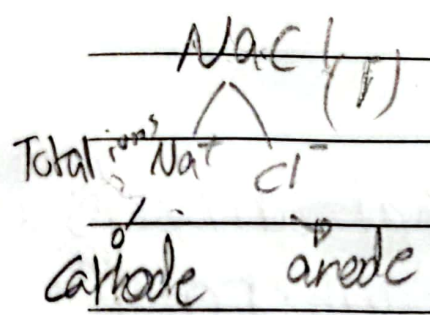 NaCl(l)
Total ions Na+ Cl-
Cathode anode